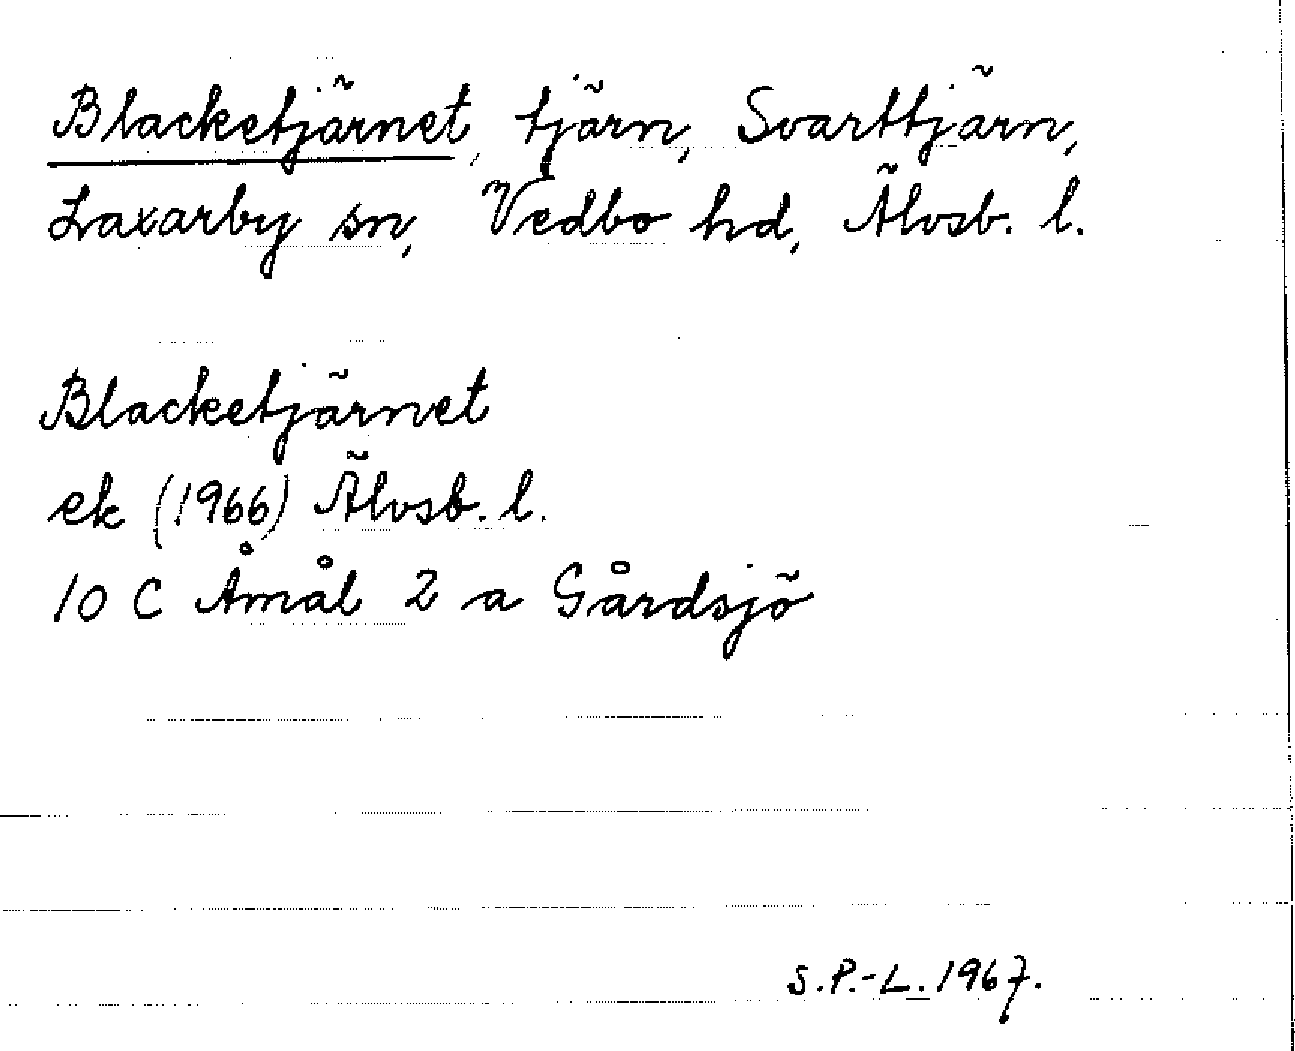 Blacketjärnet, tjärn, Svarttjärn,
Laxarby sn, Vedbo hd, Älvsb. l.
Blacketjärnet
ek (1966) Älvsb. l.
10 C Åmål 2 a Gårdsjö
S.P.-L. 1967.